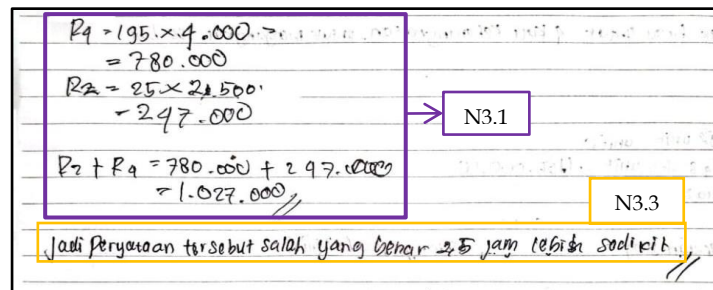 R4 = 195 × 4.000 =
= 780.000
R2 = 25 × 21.500
= 247.000
N3.1
R2 + R4 = 780.000 + 297.000
= 1.027.000
N3.3
Jadi Peryataan tersebut salah yang benar 2,5 jam lebih sedikit